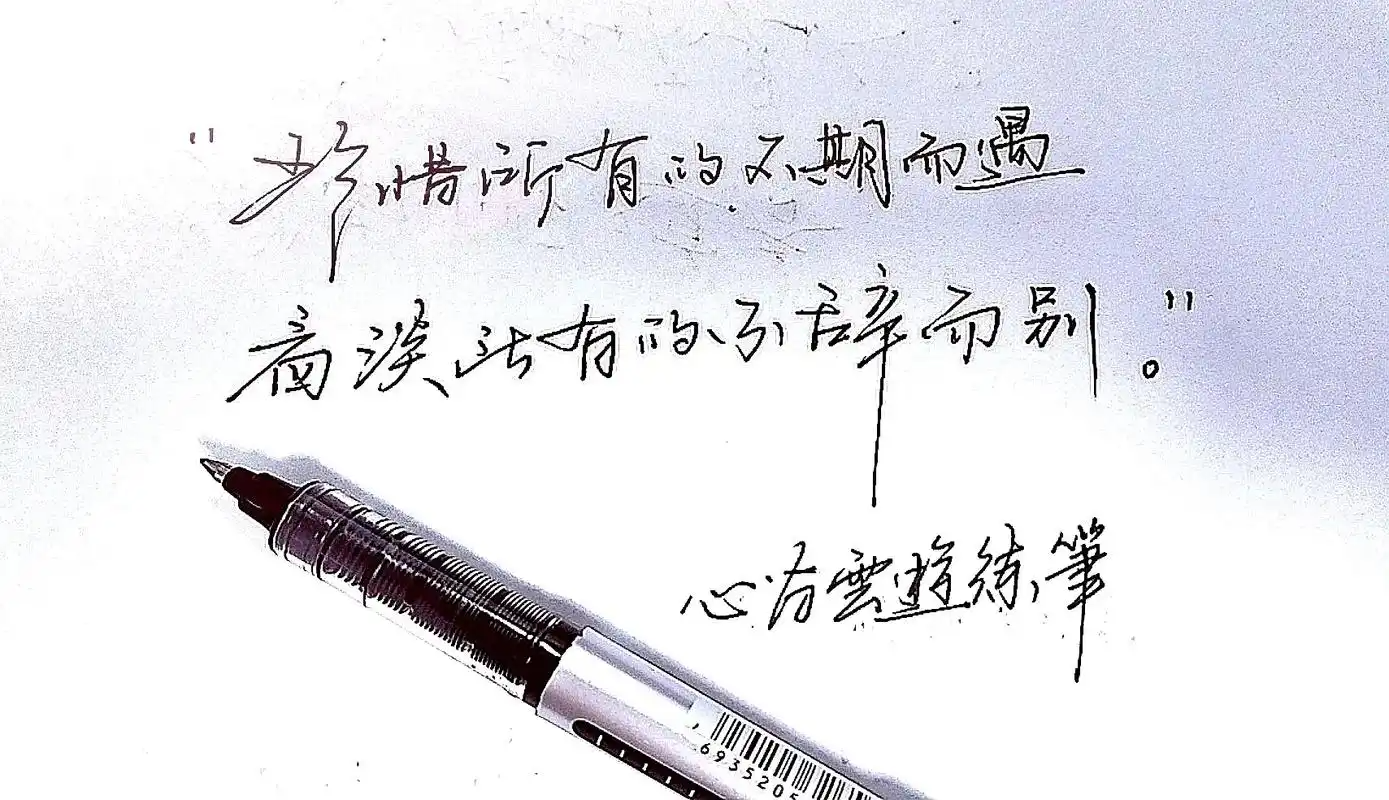 "珍惜所有的不期而遇
看淡所有的不辞而别。"
心方雲遊练筆
6935205